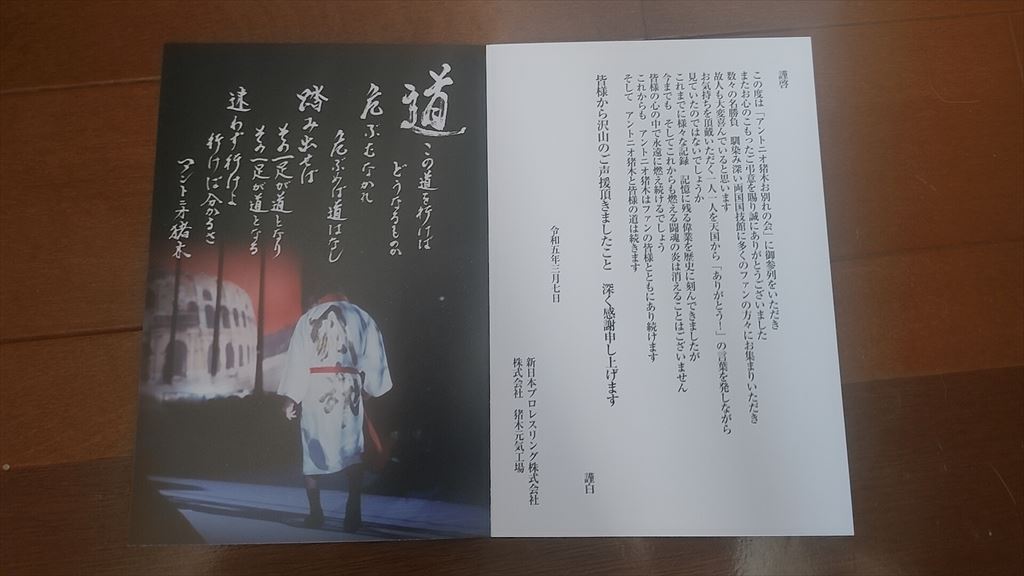 謹啓
この度は「アントニオ猪木お別れの会」に御参列をいただき
またお心のこもったご弔意を賜り誠にありがとうございました
数々の名勝負　馴染み深い両国国技館に多くのファンの方々にお集まりいただき
故人も大変喜んでいると思います
お気持ちを頂戴いただく一人一人を天国から「ありがとう！」の言葉を発しながら
見ていたのではないでしょうか
これまでに様々な記録　記憶に残る偉業を歴史に刻んできましたが
今までも　そしてこれからも燃える闘魂の炎は消えることはございません
皆様の心の中で永遠に燃え続けるでしょう
これからも　アントニオ猪木はファンの皆様とともにあり続けます
そして　アントニオ猪木と皆様の道は続きます
皆様から沢山のご声援頂きましたこと　深く感謝申し上げます
謹白
令和五年三月七日
新日本プロレスリング株式会社
株式会社　猪木元気工場
道
この道を行けば
どうなるものか
危ぶむなかれ
危ぶめば道はなし
踏み出せば
その一足が道となり
その一足が道となる
迷わず行けよ
行けば分かるさ
アントニオ猪木